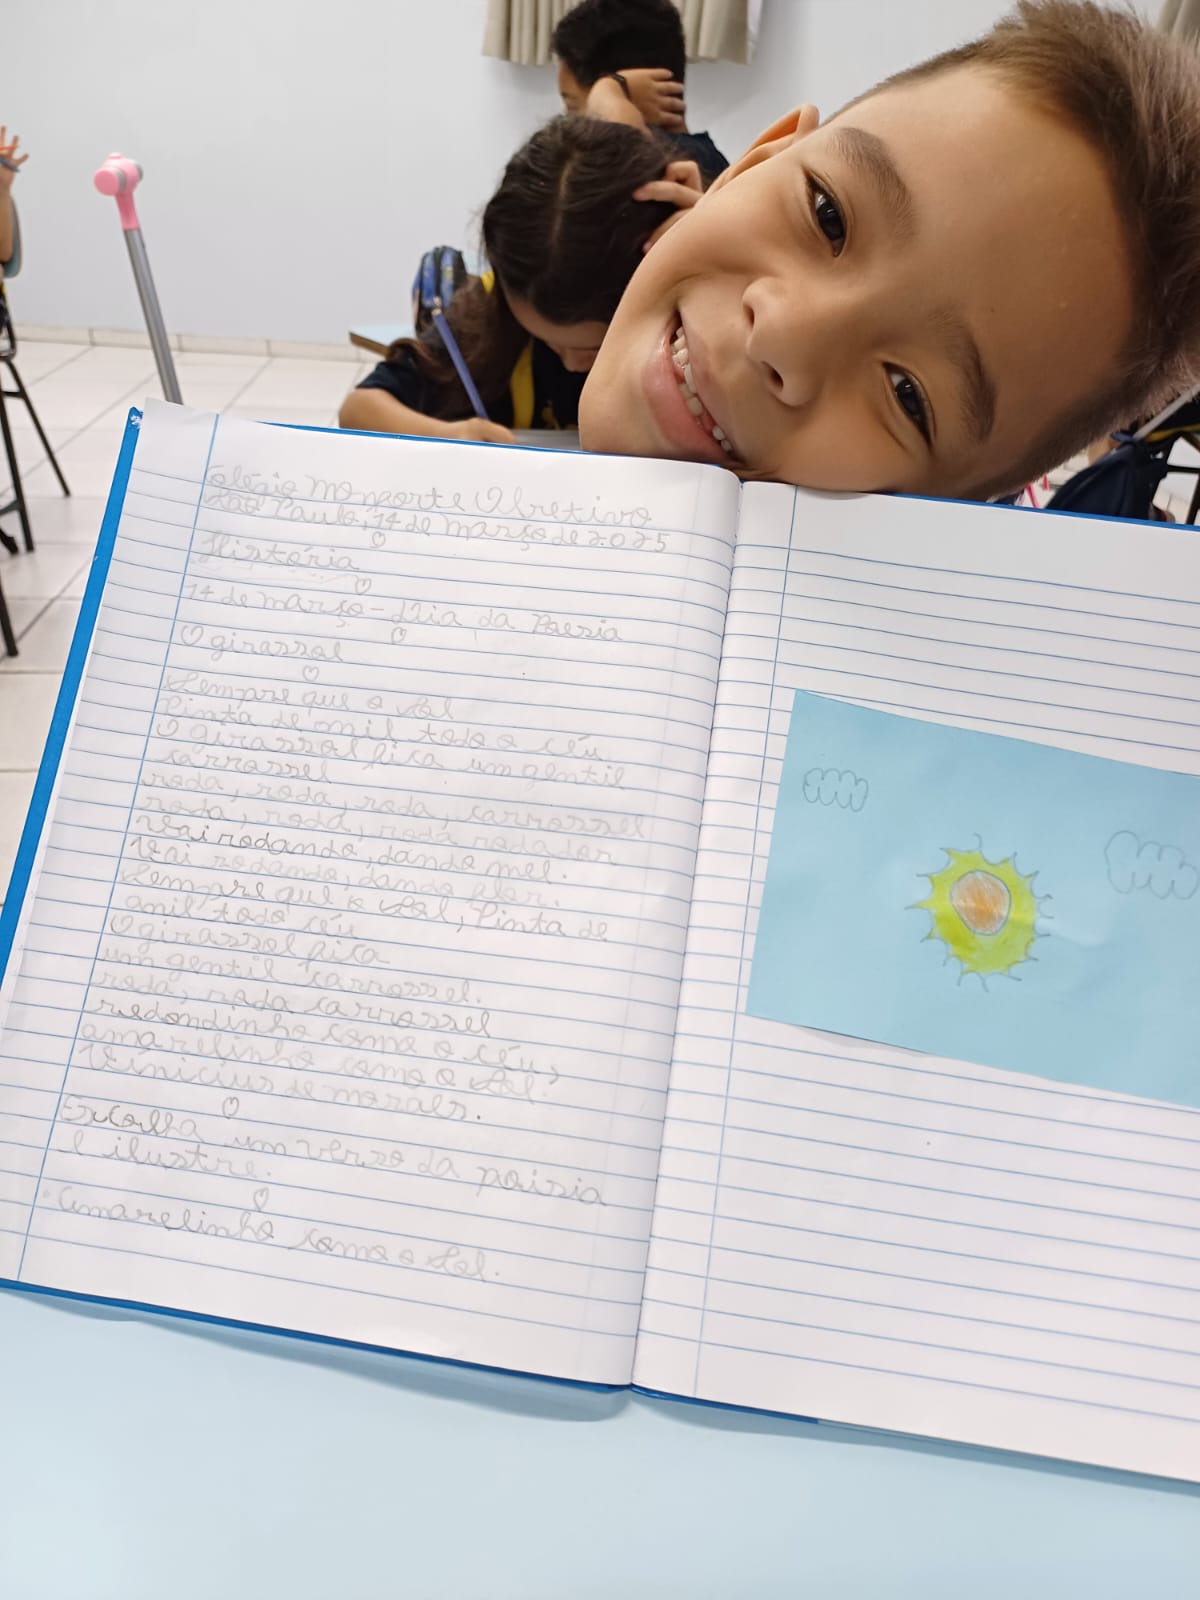 Colégio Monforte Objetivo
São Paulo, 14 de março de 2025
História
14 de março - Dia da Poesia
O girassol
Sempre que o Sol
Pinta de anil todo o céu
O girassol fica um gentil
carrossel
roda, roda, roda, carrossel
roda, roda, roda rodador
Vai rodando, dando mel.
Vai rodando, dando flor.
Sempre que o Sol, Pinta de
anil todo céu
O girassol fica
um gentil carrossel.
roda, roda carrossel
redondinho como o céu,
amarelinho como o Sol.
Vinicius de morais.
Escolha um verso da poisia
e ilustre.
Amarelinho como o Sol.